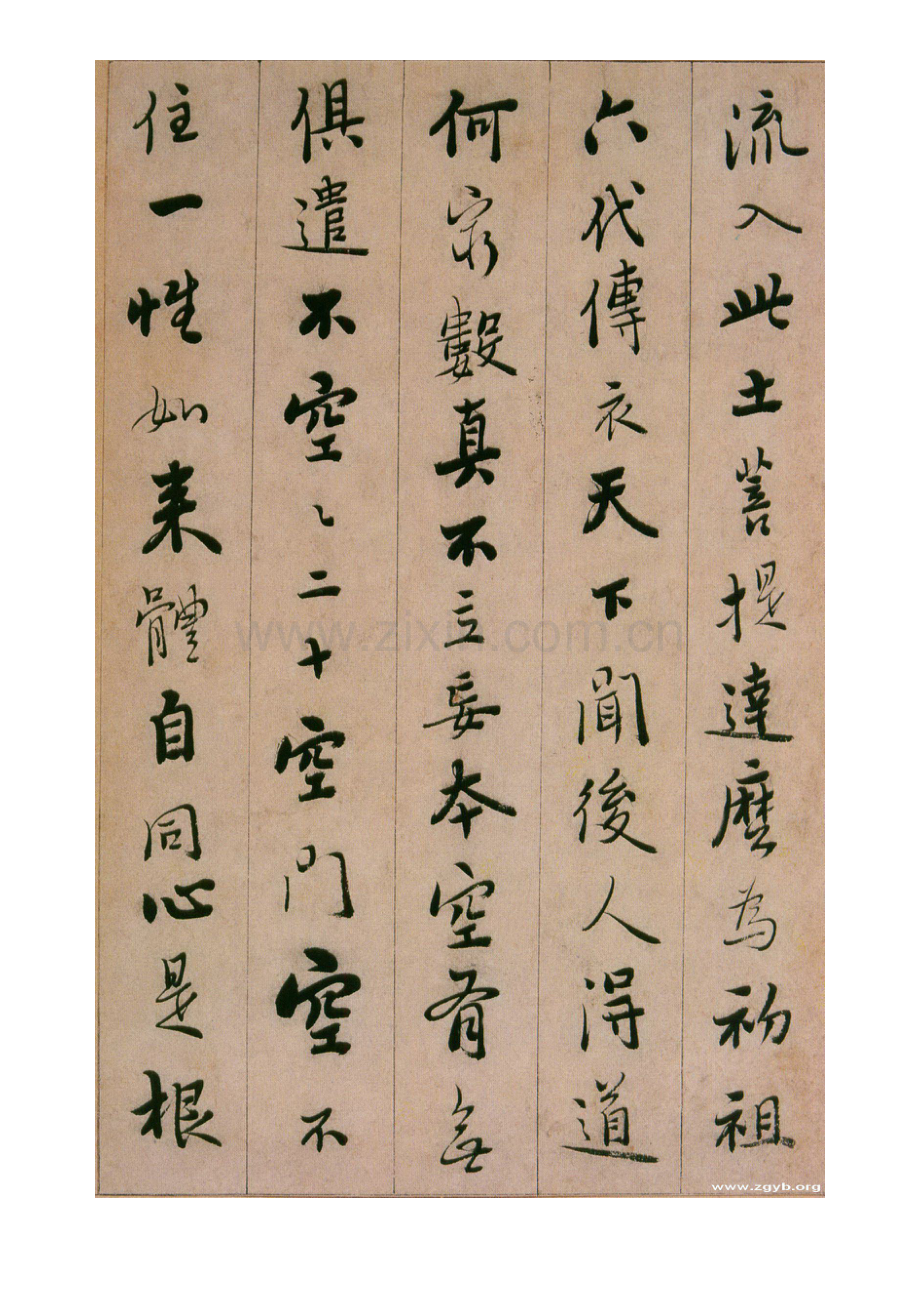 流入此土菩提達磨為初祖
六代傳衣天下聞後人得道
何窮數真不立妄本空有無
俱遣不空〻二十空門空不
住一性如来體自同心是根
www.zixin.com.cn
www.zgyb.org